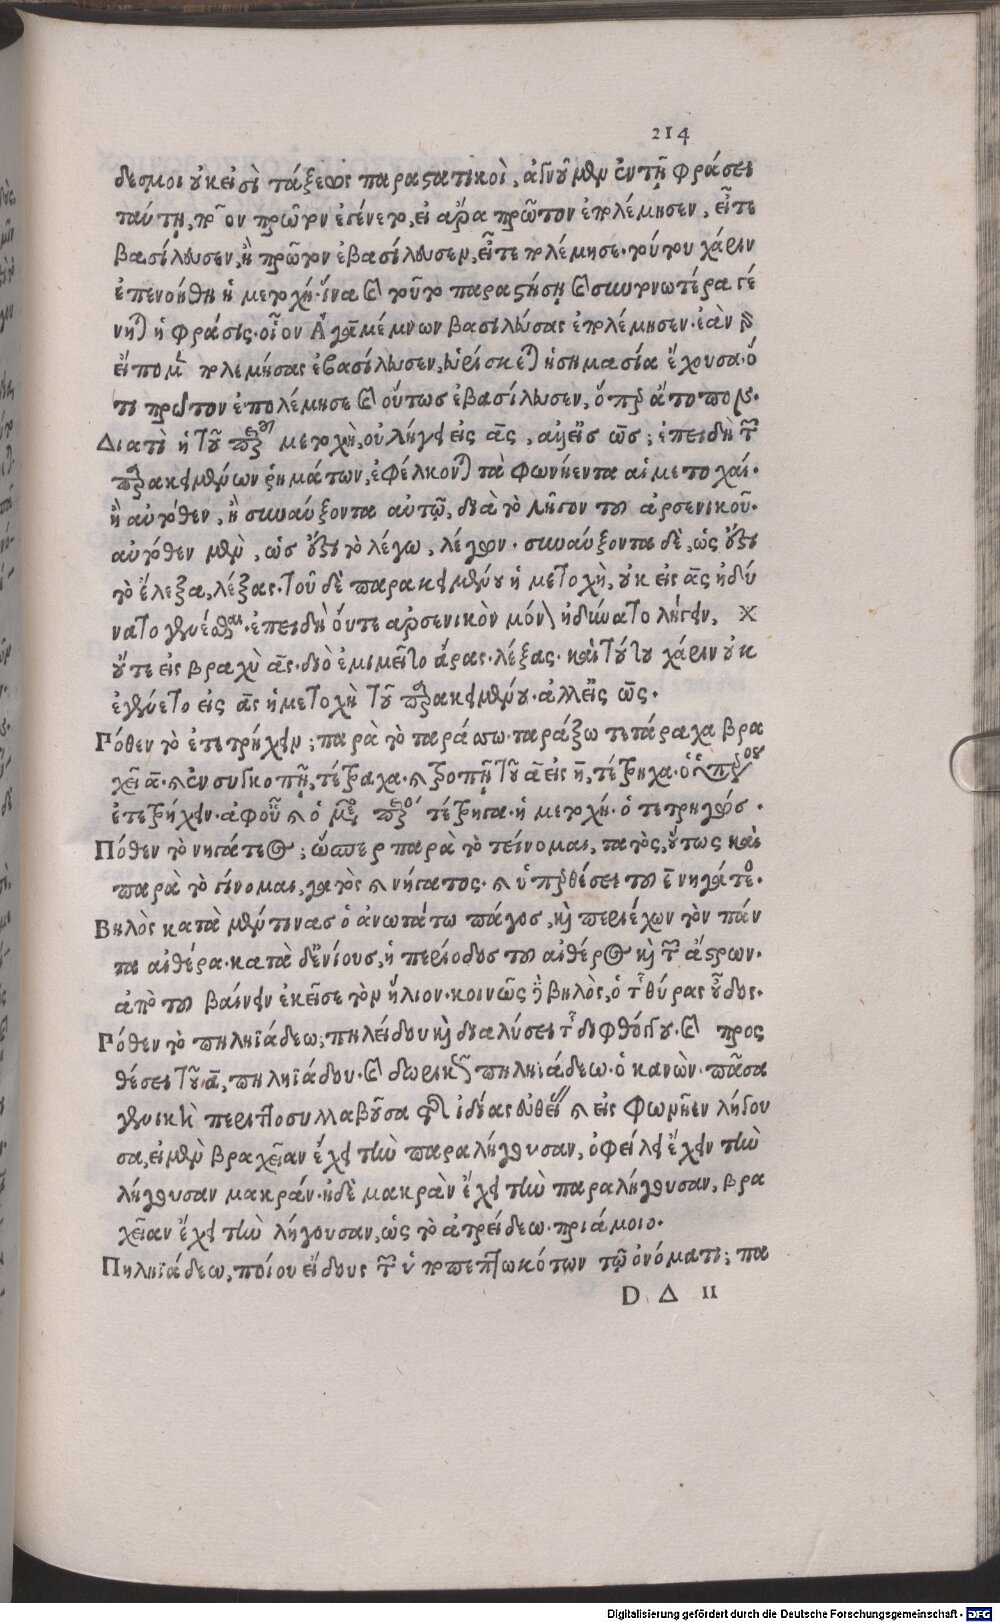 214
δεσμοι ὐκεισὶ τάξεως παραστατικοὶ, ἀδνῦ μὲν ἐντῇ φράσει
ταύτῃ, τὸ ον πρῶτον ἐγένετο, εἰ ἄρα πρῶτον ἐπολέμησεν, εἶτε
βασίλευσεν, ἢ πρῶτον ἐβασίλευσεν, εἶτε πολέμησε. τούτου χάριν
ἐπενοήθη ἡ μετοχή. ἵνα καὶ τοῦτο παραστήσῃ καὶ σκυτνωτέρα γέ
νηται ἡ φράσις. οἷον Ἀγαμέμνων βασιλεύσας ἐπολέμησεν. ἐὰν δὲ
εἴπομεν πολεμήσας ἐβασίλευσεν, εὑρίσκεται ἡ σημασία ἔχουσα. ὅ
τι πρῶτον ἐπολέμησε καὶ οὕτως ἐβασίλευσεν, ὅπερ ἄτοπον.
Διατὶ ἡ τοῦ μετοχὴ, οὐ λήγει εἰς ας, αλλεῖς ως; ἐπειδὴ τῶν
παρακειμένων ῥημάτων, ἐφέλκονται τὰ φωνήεντα αἱ μετοχαί.
ἢ αὐτόθεν, ἢ συναύξοντα αὐτῷ, διὰ τὸ λῆγον του ἀρσενικοῦ.
αὐτόθεν μὲν, ὡς ἔχει τὸ λέγω, λέγων. συναύξοντα δὲ, ὡς ἔχει
τὸ ἔλεξα, λέξας. τοῦ δὲ παρακειμένου ἡ μετοχὴ, οὐκ εἰς ας ἠδύ
νατο γενέσθαι. ἐπειδὴ ὅυτε ἀρσενικὸν μόνον ἠδύνατο λήγειν, Χ
ὄυτε εἰς βραχὺ ας. διὸ ἐμιμεῖτο ἄρας. λέξας. καὶ τούτου χάριν οὐκ
ἐγένετο εἰς ας ἡ μετοχὴ τοῦ παρακειμένου. ἀλλεῖς ως.
Πόθεν τὸ ἐτετρήχειν; παρὰ τὸ ταράσσω. ταράξω τετάραχα βρα
χεῖ α. καὶ ἐν συγκοπῇ, τέτραχα. καὶ τροπῇ τοῦ α εἰς η, τέτρηχα. ὁ ὑπερσ
ἐτετρήχειν. ἀφοῦ καὶ ὁ τέτρηγα. ἡ μετοχή. ὁ τετρηχώς.
Πόθεν τὸ νηγάτεος; ὥσπερ παρὰ τὸ τείνομαι, τατὸς, ὕτως καὶ
παρὰ τὸ γίνομαι, γατὸς καὶ νήγατος. καὶ ὑπερθέσει του ε νηγάτεος.
Βηλὸς κατὰ μὲν τινας ὁ ἀνωτάτω πάγος, καὶ περιέχων τὸν πάν
τα αἰθέρα. κατὰ δ' ἐνίους, ἡ περίοδος του αἰθέρος καὶ τῶν ἄστρων.
ἀπὸ του βαίνειν ἐκεῖσε τὸν ἥλιον. κοινῶς δὲ βηλὸς, ὁ τῆς θύρας οὖδος.
Πόθεν τὸ πηληϊάδεω; πηλείδου καὶ διαλύσει τῆς διφθόγγου. καὶ προς
θέσει τοῦ α, πηληϊάδου. καὶ δωρικῶς πηληιάδεω. ὁ κανὼν. πᾶσα
γενικὴ περιττοσυλλαβοῦσα τῆς ἰδίας εὐθείας καὶ εἰς φωνῆεν λήγου
σα, εἰ μὲν βραχεῖαν ἔχει τὴν παραλήγουσαν, ὀφείλει ἔχειν τὴν
λήγουσαν μακράν. ἡ δὲ μακρὰν ἔχει τὴν παραλήγουσαν, βρα
χεῖαν ἔχει τὴν λήγουσαν, ὡς τὸ ἀτρείδεω. πριάμοιο.
Πηληϊάδεω, ποίου εἴδους τῶν ὑποπεπτωκότων τῷ ὀνόματι; πα
D Δ II
Digitalisierung gefördert durch die Deutsche Forschungsgemeinschaft - DFG